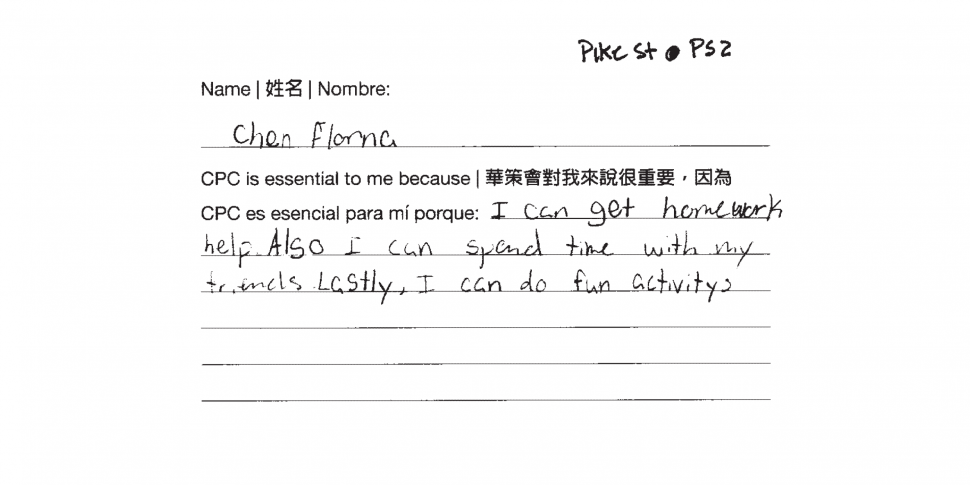 Pike St • PS2
Name | 姓名 | Nombre:
Chen Florna
CPC is essential to me because | 華策會對我來說很重要，因為
CPC es esencial para mí porque: I can get homework
help. Also I can spend time with my
friends. Lastly, I can do fun activitys